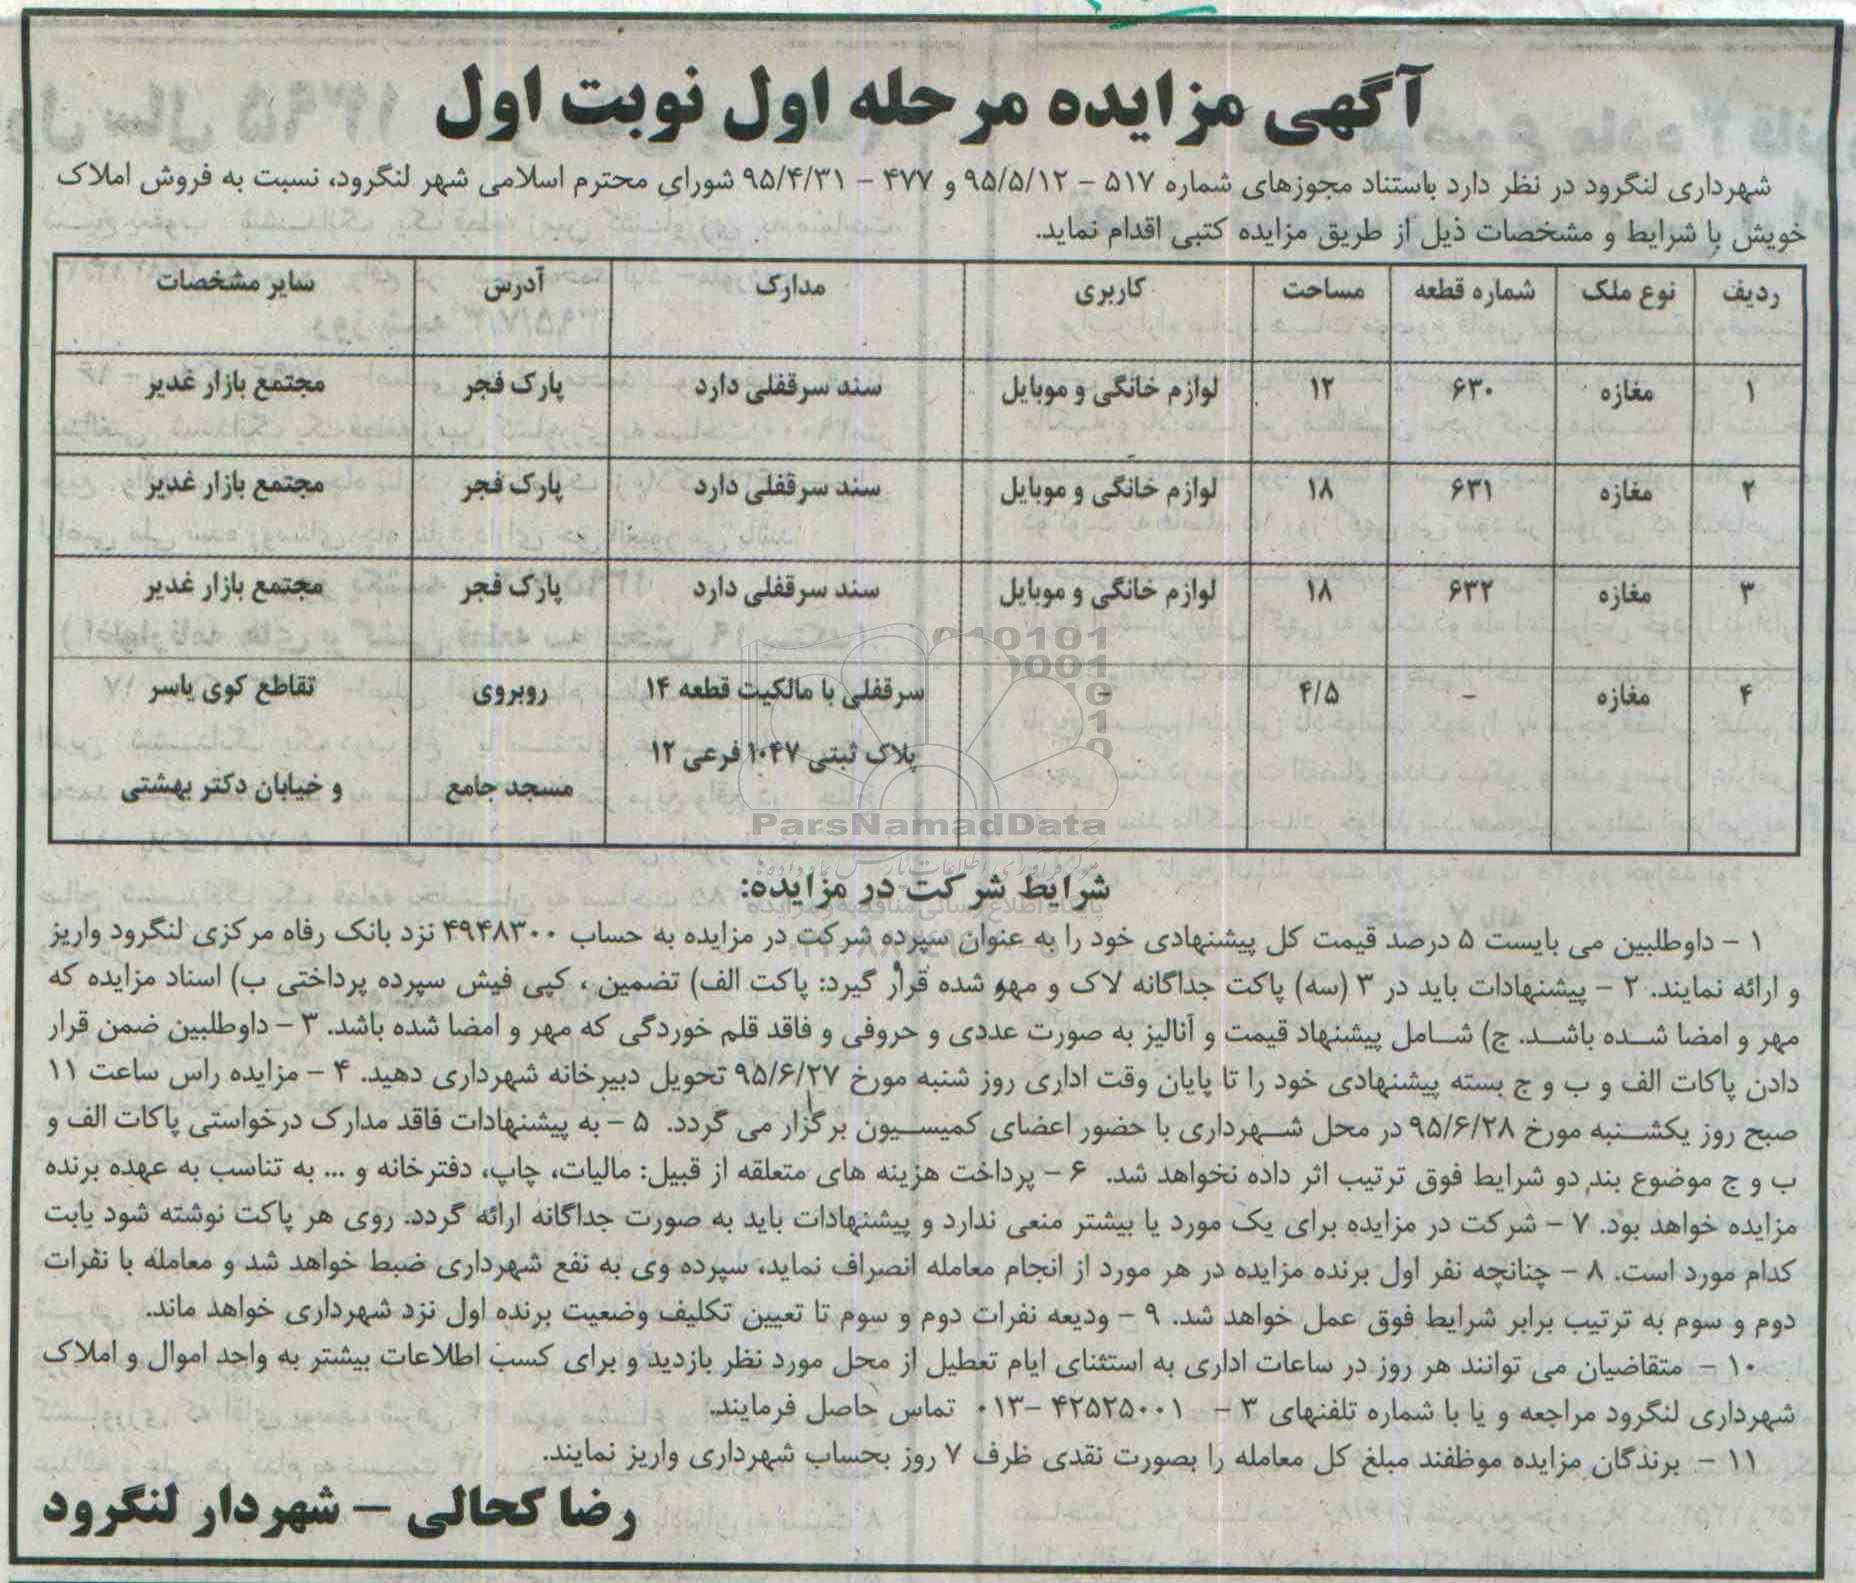 آگهی مزایده مرحله اول نوبت اول
شهرداری لنگرود در نظر دارد باستناد مجوزهای شماره ۵۱۷ – ۹۵/۵/۱۲ و ۴۷۷ – ۹۵/۴/۳۱ شورای محترم اسلامی شهر لنگرود، نسبت به فروش املاک
خویش با شرایط و مشخصات ذیل از طریق مزایده کتبی اقدام نماید.
ردیف نوع ملک شماره قطعه مساحت کاربری مدارک آدرس سایر مشخصات
۱ مغازه ۶۳۰ ۱۲ لوازم خانگی و موبایل سند سرقفلی دارد پارک فجر مجتمع بازار غدیر
۲ مغازه ۶۳۱ ۱۸ لوازم خانگی و موبایل سند سرقفلی دارد پارک فجر مجتمع بازار غدیر
۳ مغازه ۶۳۲ ۱۸ لوازم خانگی و موبایل سند سرقفلی دارد پارک فجر مجتمع بازار غدیر
۴ مغازه – ۴/۵ – سرقفلی با مالکیت قطعه ۱۴ روبروی تقاطع کوی یاسر
پلاک ثبتی ۱۰۴۷ فرعی ۱۲
مسجد جامع و خیابان دکتر بهشتی
ParsNamadData
شرایط شرکت در مزایده:
۱ – داوطلبین می بایست ۵ درصد قیمت کل پیشنهادی خود را به عنوان سپرده شرکت در مزایده به حساب ۴۹۴۸۳۰۰ نزد بانک رفاه مرکزی لنگرود واریز
و ارائه نمایند. ۲ – پیشنهادات باید در ۳ (سه) پاکت جداگانه لاک و مهر شده قرار گیرد: پاکت الف) تضمین ، کپی فیش سپرده پرداختی ب) اسناد مزایده که
مهر و امضا شده باشد. ج) شامل پیشنهاد قیمت و آنالیز به صورت عددی و حروفی و فاقد قلم خوردگی که مهر و امضا شده باشد. ۳ – داوطلبین ضمن قرار
دادن پاکات الف و ب و ج بسته پیشنهادی خود را تا پایان وقت اداری روز شنبه مورخ ۹۵/۶/۲۷ تحویل دبیرخانه شهرداری دهید. ۴ – مزایده راس ساعت ۱۱
صبح روز یکشنبه مورخ ۹۵/۶/۲۸ در محل شهرداری با حضور اعضای کمیسیون برگزار می گردد. ۵ – به پیشنهادات فاقد مدارک درخواستی پاکات الف و
ب و ج موضوع بند دو شرایط فوق ترتیب اثر داده نخواهد شد. ۶ – پرداخت هزینه های متعلقه از قبیل: مالیات، چاپ، دفترخانه و ... به تناسب به عهده برنده
مزایده خواهد بود. ۷ – شرکت در مزایده برای یک مورد یا بیشتر منعی ندارد و پیشنهادات باید به صورت جداگانه ارائه گردد. روی هر پاکت نوشته شود بابت
کدام مورد است. ۸ – چنانچه نفر اول برنده مزایده در هر مورد از انجام معامله انصراف نماید، سپرده وی به نفع شهرداری ضبط خواهد شد و معامله با نفرات
دوم و سوم به ترتیب برابر شرایط فوق عمل خواهد شد. ۹ – ودیعه نفرات دوم و سوم تا تعیین تکلیف وضعیت برنده اول نزد شهرداری خواهد ماند.
۱۰ – متقاضیان می توانند هر روز در ساعات اداری به استثنای ایام تعطیل از محل مورد نظر بازدید و برای کسب اطلاعات بیشتر به واحد اموال و املاک
شهرداری لنگرود مراجعه و یا با شماره تلفنهای ۳ – ۴۲۵۲۵۰۰۱ –۰۱۳ تماس حاصل فرمایند.
۱۱ – برندگان مزایده موظفند مبلغ کل معامله را بصورت نقدی ظرف ۷ روز بحساب شهرداری واریز نمایند.
رضا کحالی – شهردار لنگرود